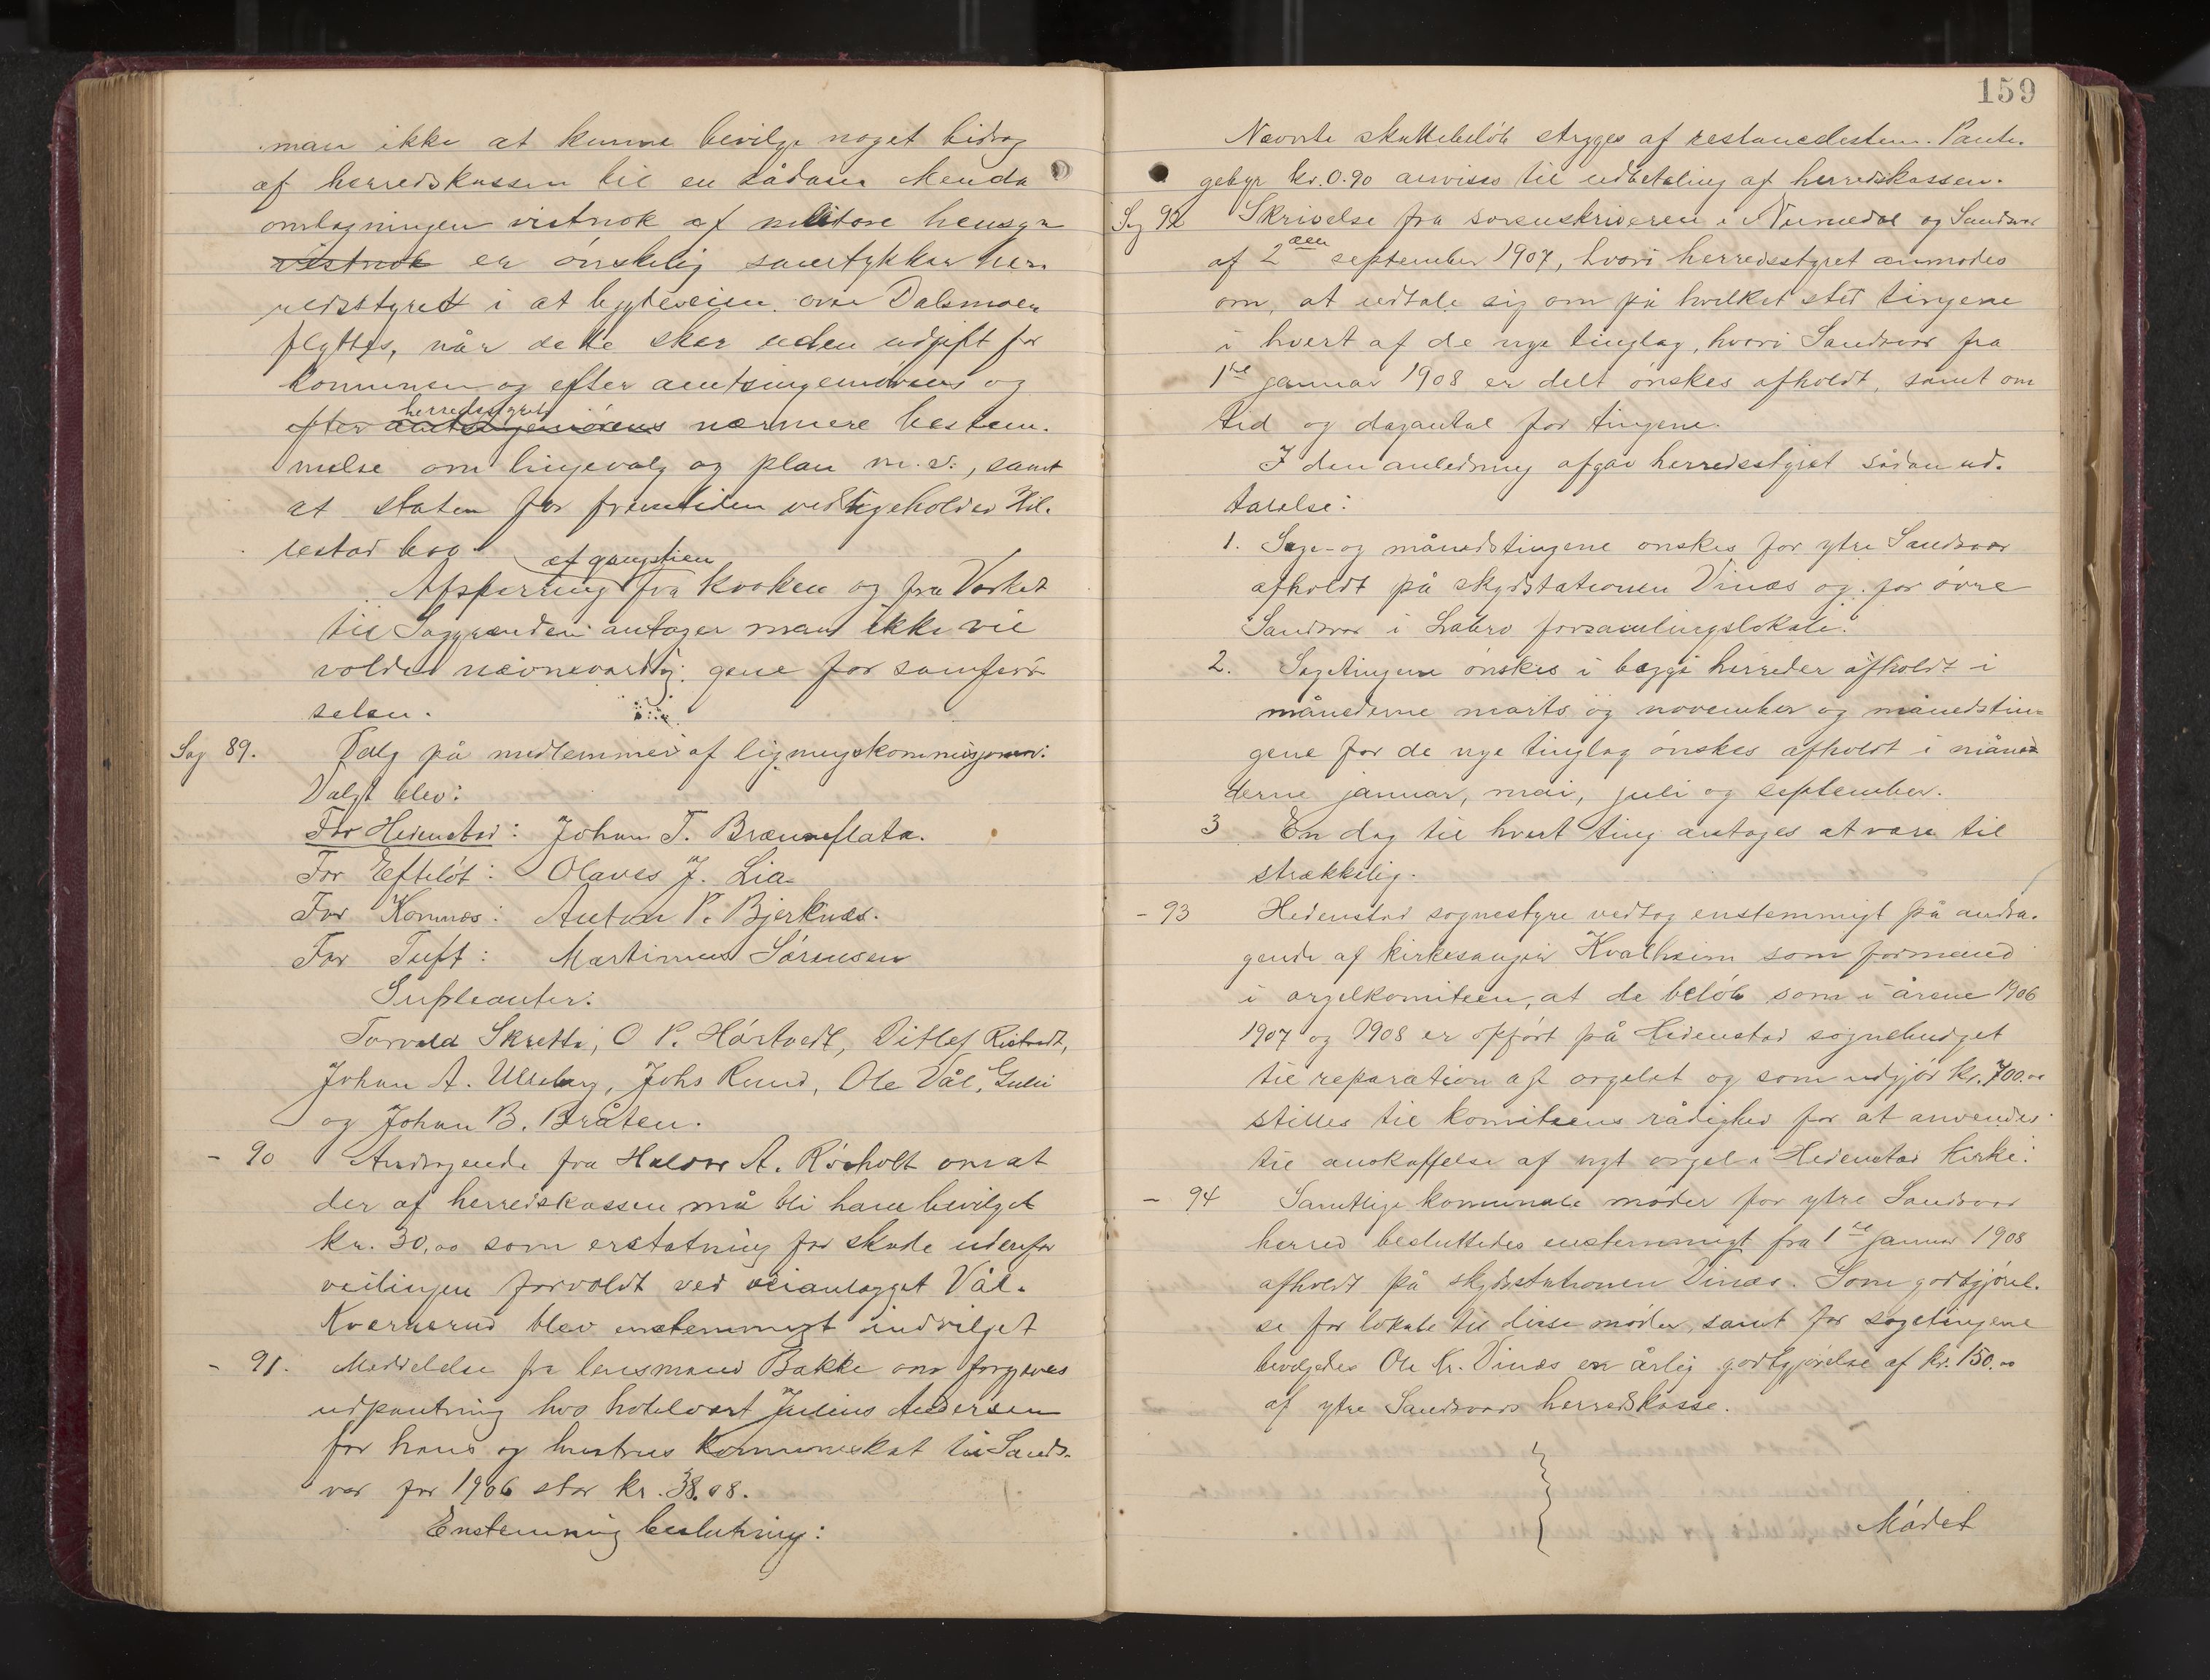 man ikke at kunne bevilge noget bidrag
af herredskassen til en sådan. Menda
omlægningen vistnok af militære hensyn
vistnok er ønskelig samtykker her-
redsstyret i at bygdeveien over Dalsmoen
flyttes, når dette sker uden udgift for
kommunen og efter amtsingeniørens og
herredsstyrets
efter amtsingeniørens nærmere bestem-
melse om linjevalg og plan m. v., samt
at staten for fremtiden vedligeholder Hil-
lestad bro.
af gangstien
Afsperring fra Kroken og fra Værket
til Saggrenden antager man ikke vil
volde nævneværdig gene for samfærs-
selen.
Sag 89. Valg på medlemmer af ligningskommisjonen:
Valgt blev:
For Hedenstad: Johan T. Brænneflata.
For Efteløt: Olaves J. Lia
For Komnes: Anton P. Bjerknes.
For Tuft: Martinus Sørensen
Supleanter:
Torvald Skretta, O P. Hørtvedt, Ditlef Ristvedt,
Johan A. Ulleberg, Johs Rund, Ole Vål,
og Johan B. Bråten.
- 90 Andragende fra Halvor A. Røsholt om at
der af herredskassen må bli ham bevilget
kr. 30,00 som erstatning for skade udenfor
veilinjen forvoldt ved veianlægget Vål-
Kvernerud blev enstemmigt indvilget
- 91. Meddelelse fra lensmand Bakke om forgjæves
udpantning hos hotelvært Julius Andersen
for hans og hustrus Kommuneskat til Sands-
vær for 1906 stor kr. 38.08.
Enstemmig beslutning:
159
Nævnte skattebeløb stryges af restancelisten. Pante-
gebyr kr. 0.90 anvises til udbetaling af herredskassen.
Sag 92 Skrivelse fra sorenskriveren i Numedal og Sandsvær
af 2den september 1907, hvori herredsstyret anmodes
om, at udtale sig om på hvilket sted tingene
i hvert af de nye tinglag, hvori Sandsvær fra
1ste januar 1908 er delt ønskes afholdt, samt om
tid og dagantal for tingene.
I den anledning afgav herredsstyret sådan ud-
talelse:
1. Sage- og månedstingene ønskes for ytre Sandsvær
afholdt på skydsstationen Vinæs og for øvre
Sandsvær i Labro forsamlingslokale.
2. Sagetingene ønskes i begge herreder afholdt i
månederne marts og november og månedstin-
gene for de nye tinglag ønskes afholdt i måne-
derne januar, mai, juli og september.
3 En dag til hvert ting antages at være til
strækkelig.
- 93 Hedenstad sognestyre vedtog enstemmigt på andra-
gende af kirkesanger Kvalheim som formand
i orgelkomiteen, at de beløb som i årene 1906
1907 og 1908 er opført på Hedenstad sognebudget
til reparation af orgelet og som udgjør kr. 700.00
stilles til komiteens rådighed for at anvendes
til anskaffelse af nyt orgel i Hedenstad kirke.
- 94 Samtlige kommunale møder for ytre Sandsvær
herred besluttedes enstemmigt fra 1ste januar 1908
afholdt på skydsstationen Vinæs. Som godtgjørel-
se for lokale til disse møder, samt for sagetingene
bevilgedes Ole Kr. Vinæs en årlig godtgjørelse af kr. 150.00
af ytre Sandsværs herredskasse.
Mødet